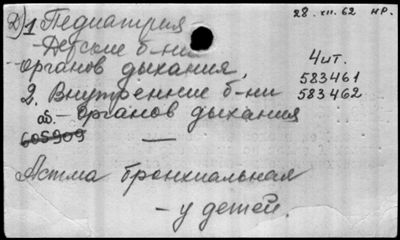 Д) 1 Педиатрия 28.XII.62 нр.
- Детские б-ни
органов дыхания. Чит.
583461
2. Внутренние б-ни 583462
аб. - Органов дыхания
605909 —
Астма бронхиальная
- у детей.